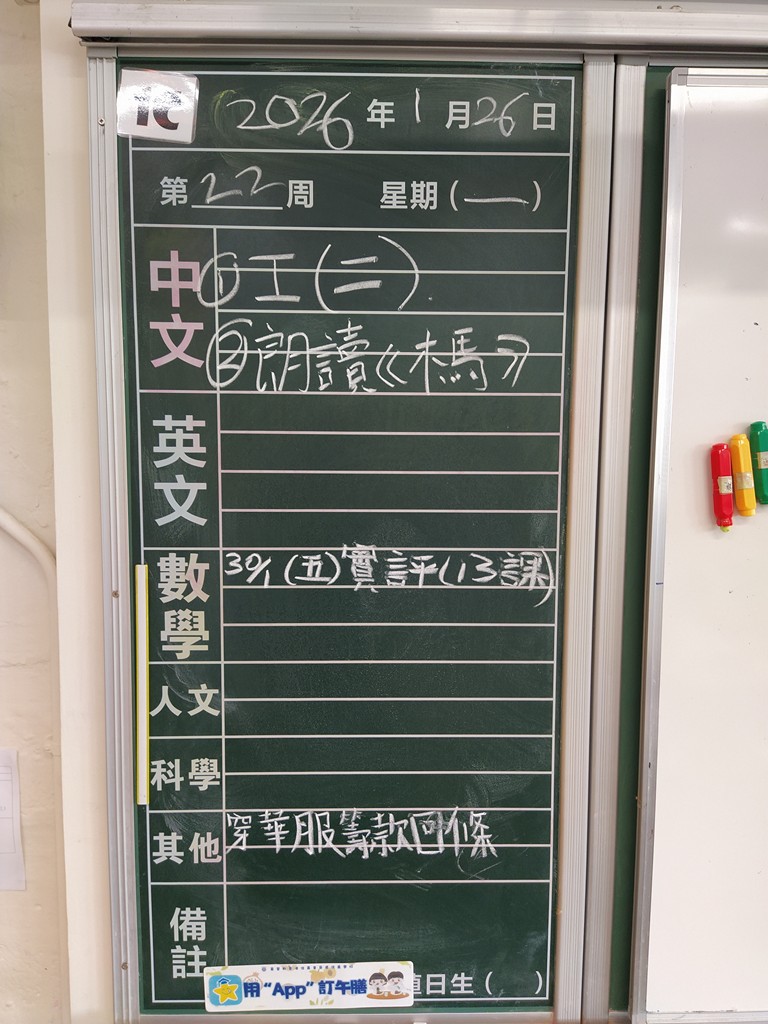 1C 2026年1月26日
第22周 星期(一)
中文 ①工(二).
②朗讀《榪》
英文
數學 30/1(五)實評(13課)
人文
科學
其他 穿華服籌款回條
備註
用“App”訂午膳 直日生( )